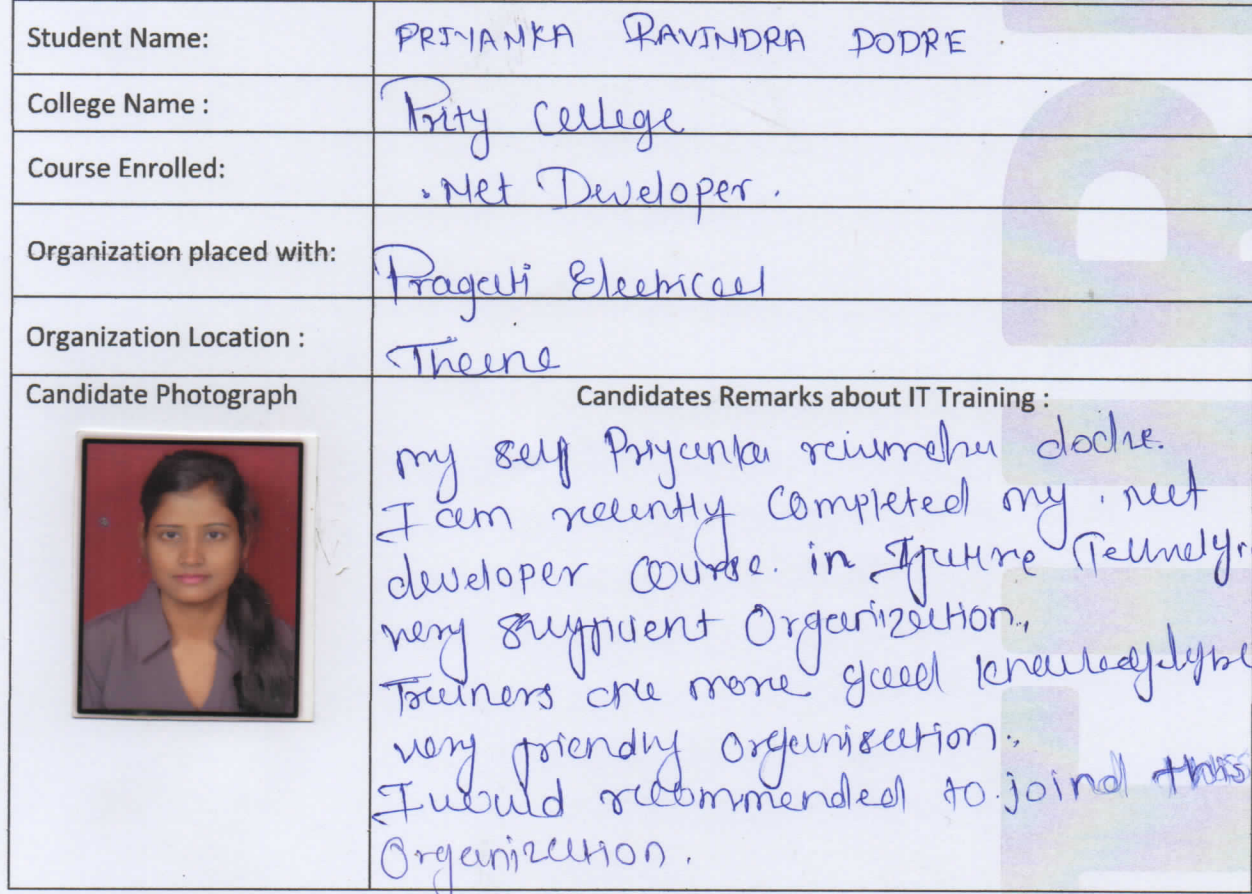 Student Name: PRIYANKA RAVINDRA DODRE.
College Name : Prity College
Course Enrolled: .Net Developer.
Organization placed with: Pragati Electrical
Organization Location : Thane
Candidate Photograph
Candidates Remarks about IT Training :
my self Priyanka ravindra dodre.
I am recently completed my .net
developer course. in
very sufficient Organization,
Trainers are more good
very friendly organisation.
I would recommended to joind this
Organization.